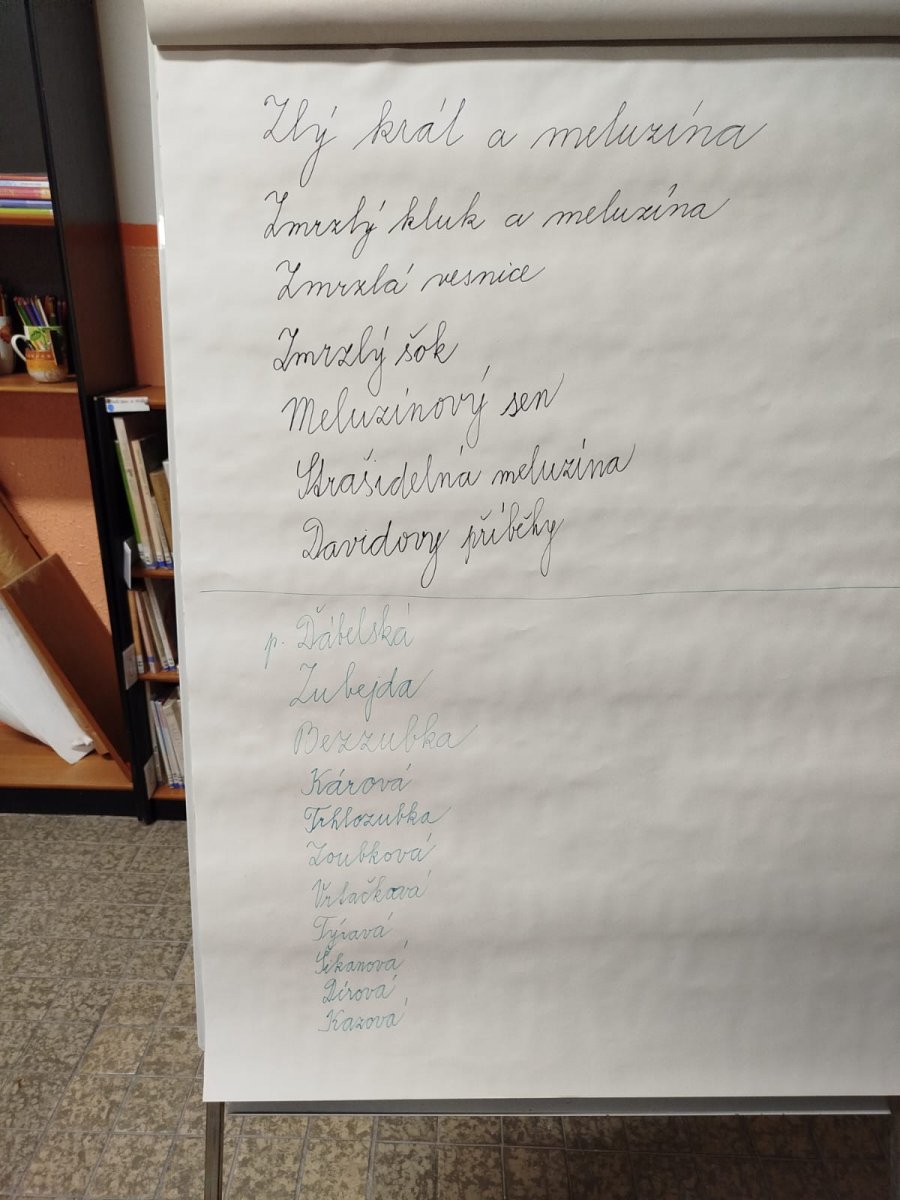 Zlý král a meluzína
Zmrzlý kluk a meluzína
Zmrzlá vesnice
Zmrzlý šok
Meluzínový sen
Strašidelná meluzína
Davidovy příběhy
p. Ďábelská
Zubejda
Bezzubka
Kárová
Trhlozubka
Zoubková
Vrtačková
Týravá
Šikanová
Dírová
Kazová